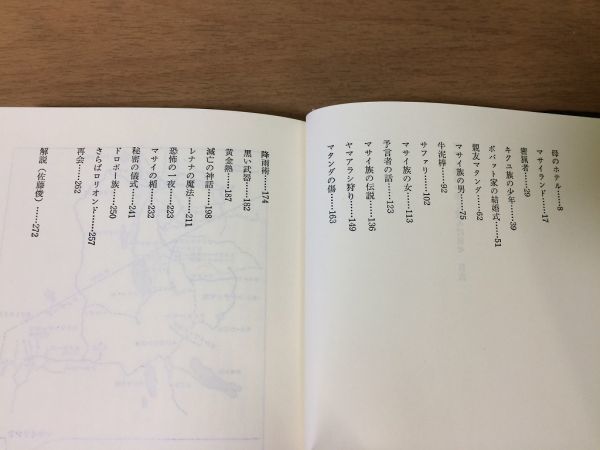 母のホテル……8
マサイランド……17
密猟者……29
キクユ族の少年……39
ボバット家の結婚式……51
親友マタンダ……62
マサイ族の男……75
牛泥棒……92
サファリ……102
マサイ族の女……113
予言者の話……123
マサイ族の伝説……136
ヤマアラシ狩り……149
マタンダの傷……163
降雨術……174
黒い武器……182
黄金熱……187
滅亡の神話……198
レナナの魔法……211
恐怖の一夜……223
マサイの楯……232
秘密の儀式……241
ドロボー族……250
さらばロリオンド……257
再会……262
解説（佐藤俊）……272